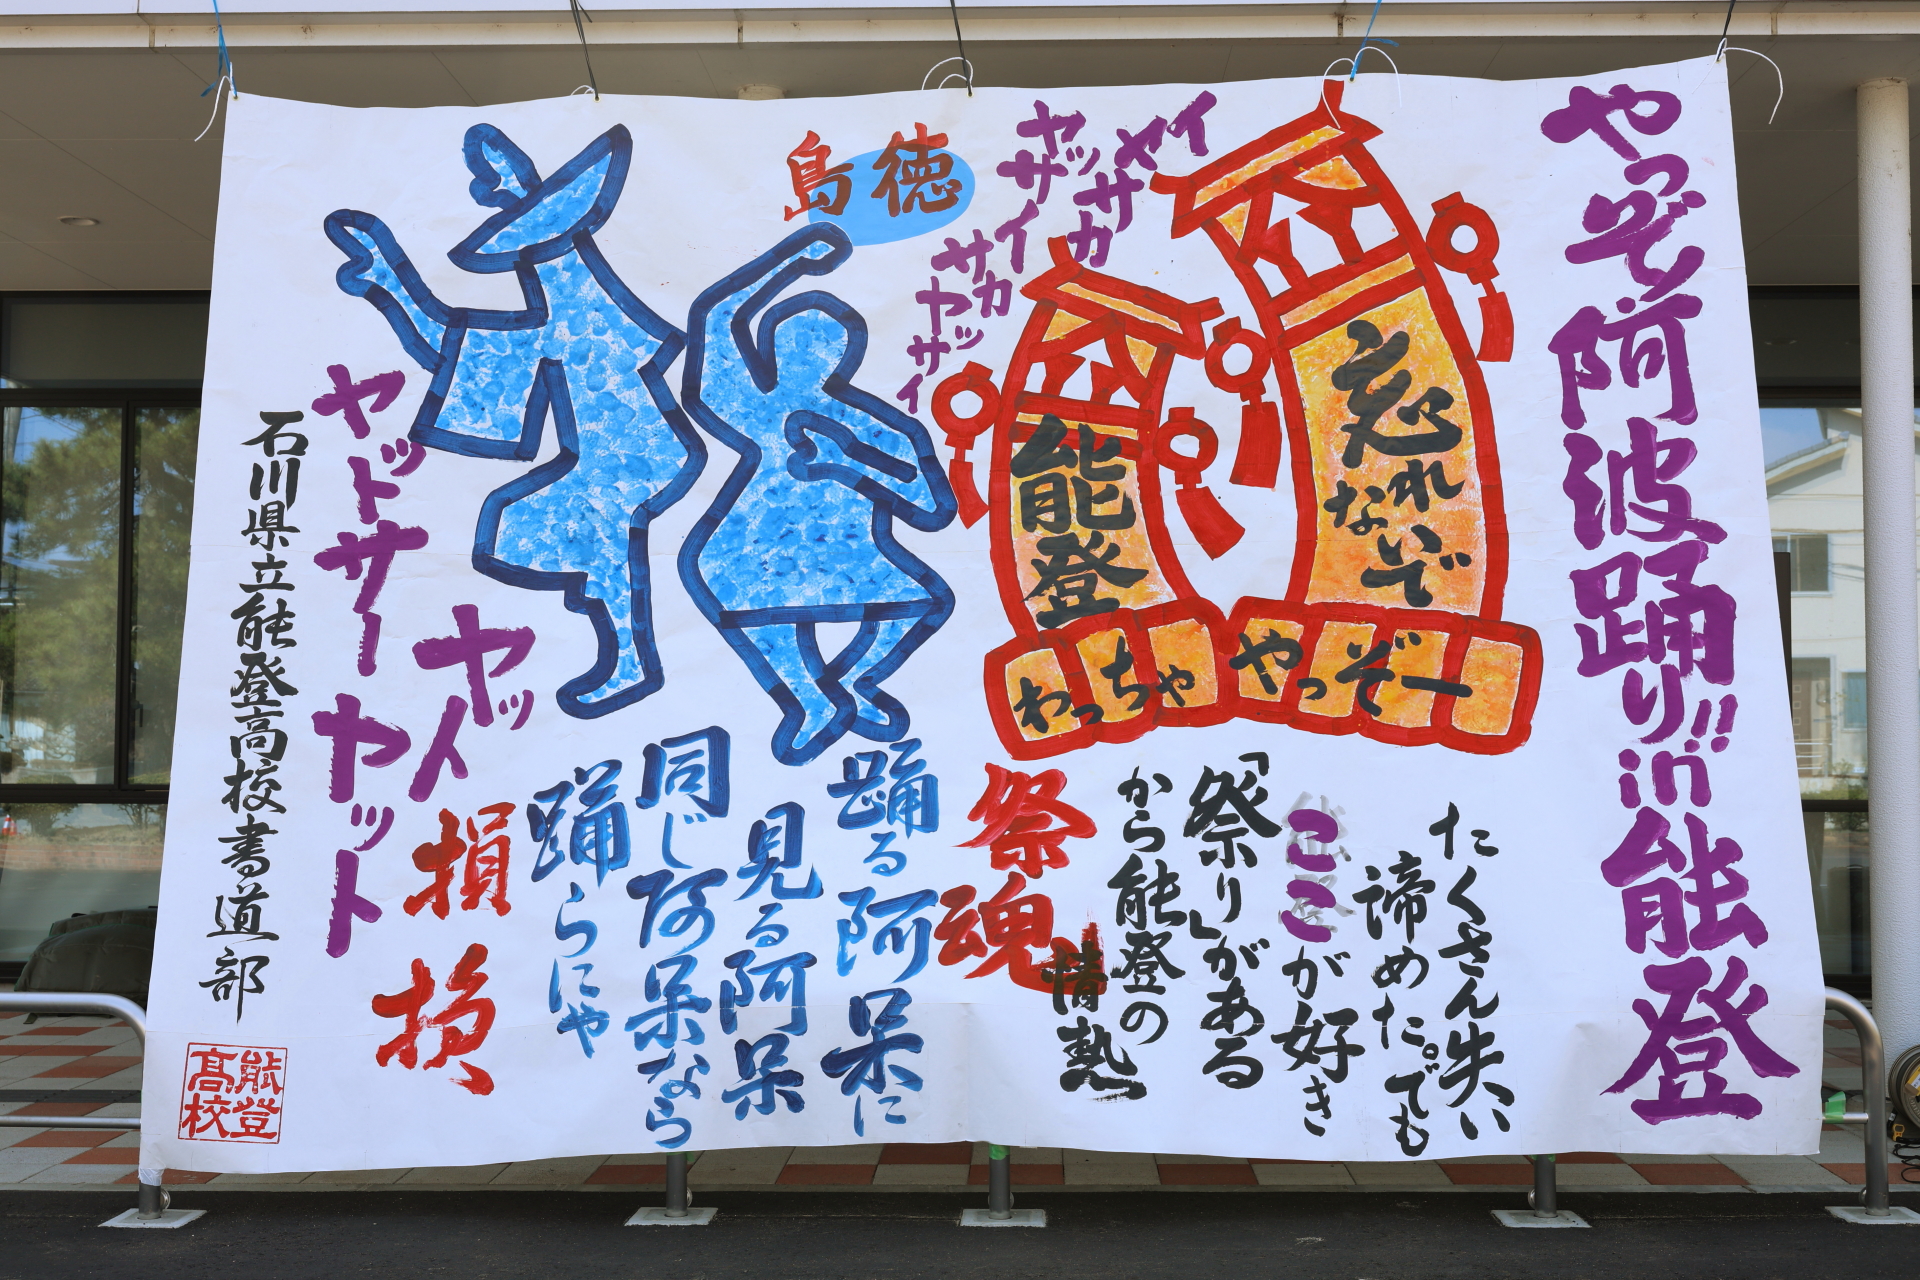 やっぞ阿波踊り!! in 能登
イヤサカ
ヤッサイ
ヤッサ
サカ
ヤッサイ
徳島
忘れないぞ
能登
わっちゃ
やっぞー
たくさん失い
諦めた。でも
ここが好き
「祭り」がある
から能登の
祭魂
情熱
踊る阿呆に
見る阿呆
同じ阿呆なら
踊らにゃ
損損
ヤットサー ヤット
ヤットヤイ
石川県立能登高校書道部
能登
高校